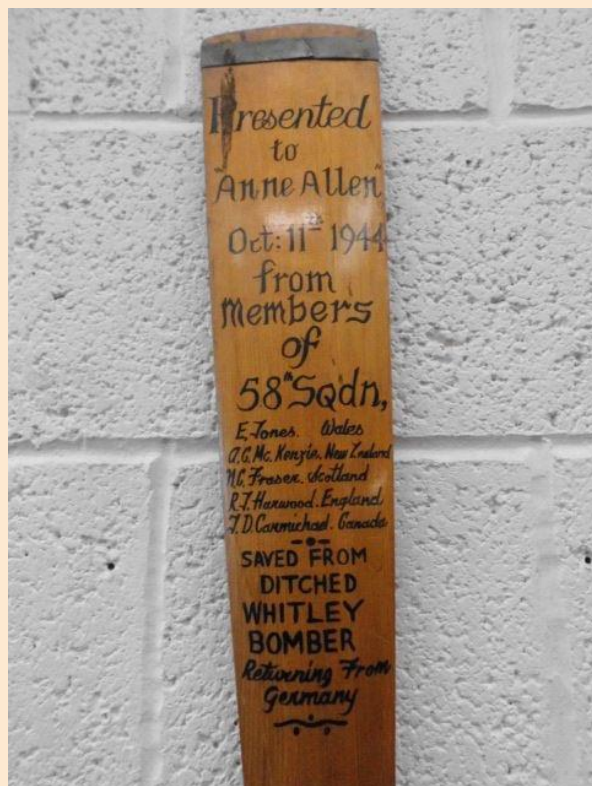 Presented
to
"Anne Allen"
Oct: 11th 1944
from
Members
of
58th Sqdn,
E. Jones. Wales
A.G. Mc. Kenzie. New Zealand
N.C. Fraser. Scotland
R.J. Harwood. England
J.D. Carmichael. Canada
SAVED FROM
DITCHED
WHITLEY
BOMBER
Returning From
Germany